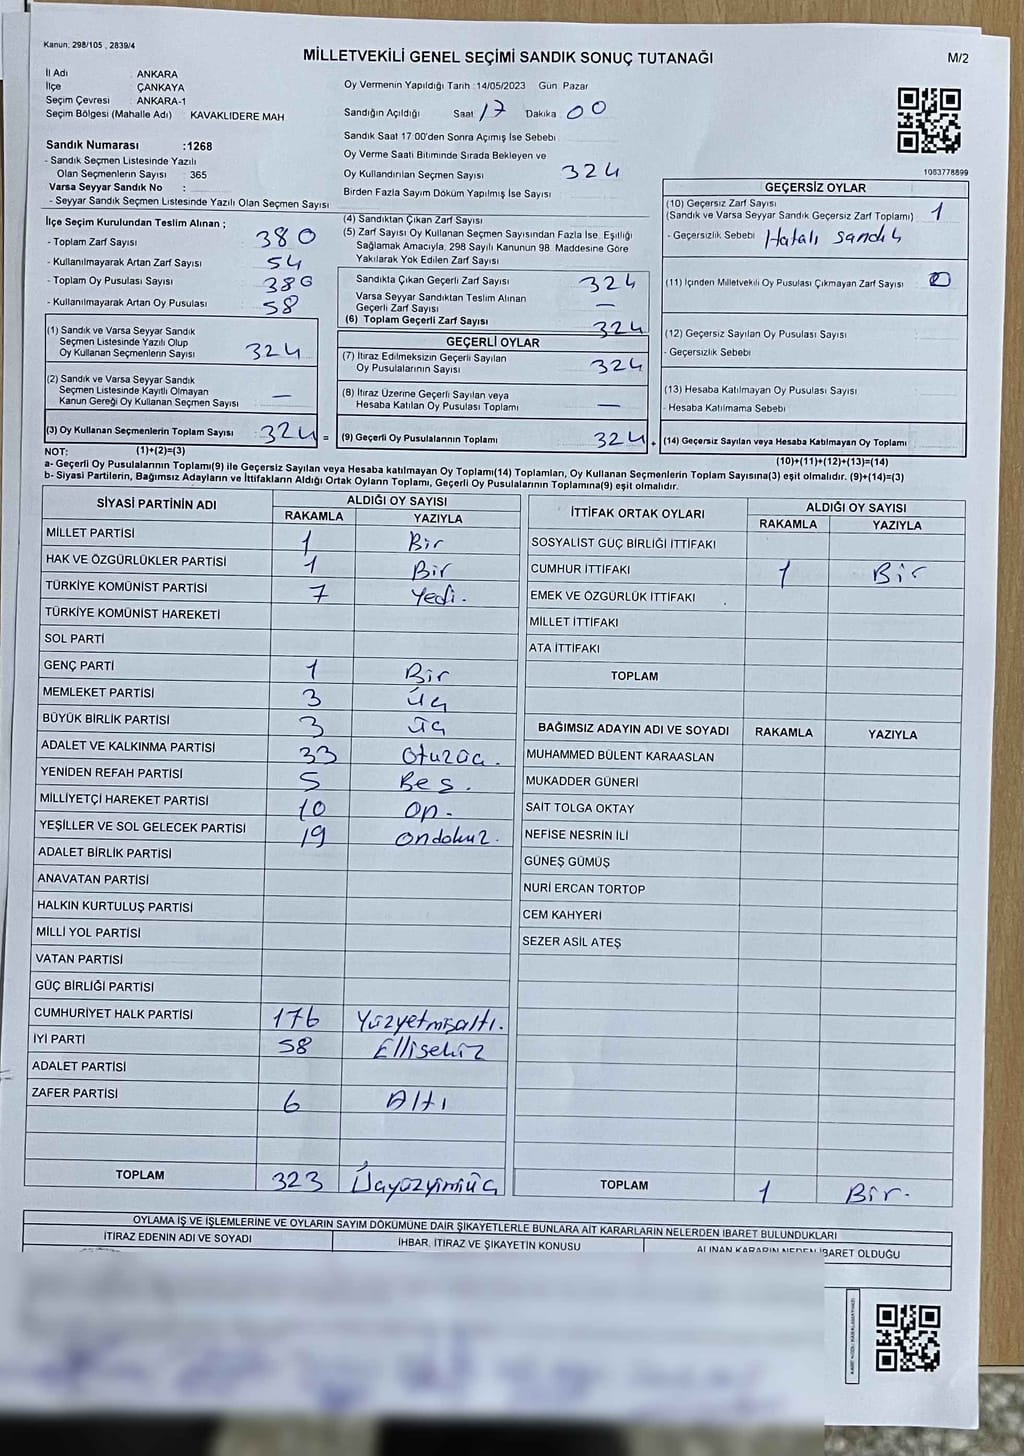 Kanun, 298/105 , 2839/4
MİLLETVEKİLİ GENEL SEÇİMİ SANDIK SONUÇ TUTANAĞI
M/2
İl Adı : ANKARA
İlçe : ÇANKAYA
Seçim Çevresi : ANKARA-1
Seçim Bölgesi (Mahalle Adı) : KAVAKLIDERE MAH
Oy Vermenin Yapıldığı Tarih :14/05/2023 Gün Pazar
Sandığın Açıldığı Saat 17 Dakika 00
Sandık Saat 17:00'den Sonra Açımış İse Sebebi
Oy Verme Saati Bitiminde Sırada Bekleyen ve
Oy Kullandırılan Seçmen Sayısı 324
Birden Fazla Sayım Döküm Yapılmış İse Sayısı
Sandık Numarası :1268
- Sandık Seçmen Listesinde Yazılı
Olan Seçmenlerin Sayısı : 365
Varsa Seyyar Sandık No :
- Seyyar Sandık Seçmen Listesinde Yazılı Olan Seçmen Sayısı
İlçe Seçim Kurulundan Teslim Alınan ;
- Toplam Zarf Sayısı 380
- Kullanılmayarak Artan Zarf Sayısı 54
- Toplam Oy Pusulası Sayısı 380
- Kullanılmayarak Artan Oy Pusulası 58
(1) Sandık ve Varsa Seyyar Sandık
Seçmen Listesinde Yazılı Olup
Oy Kullanan Seçmenlerin Sayısı 324
(2) Sandık ve Varsa Seyyar Sandık
Seçmen Listesinde Kayıtlı Olmayan
Kanun Gereği Oy Kullanan Seçmen Sayısı —
(3) Oy Kullanan Seçmenlerin Toplam Sayısı 324 =
(4) Sandıktan Çıkan Zarf Sayısı
(5) Zarf Sayısı Oy Kullanan Seçmen Sayısından Fazla İse, Eşitliği
Sağlamak Amacıyla, 298 Sayılı Kanunun 98. Maddesine Göre
Yakılarak Yok Edilen Zarf Sayısı
Sandıkta Çıkan Geçerli Zarf Sayısı 324
Varsa Seyyar Sandıktan Teslim Alınan
Geçerli Zarf Sayısı —
(6) Toplam Geçerli Zarf Sayısı 324
GEÇERLİ OYLAR
(7) İtiraz Edilmeksizin Geçerli Sayılan
Oy Pusulalarının Sayısı 324
(8) İtiraz Üzerine Geçerli Sayılan veya
Hesaba Katılan Oy Pusulası Toplamı —
(9) Geçerli Oy Pusulalarının Toplamı 324 +
1063778899
GEÇERSİZ OYLAR
(10) Geçersiz Zarf Sayısı
(Sandık ve Varsa Seyyar Sandık Geçersiz Zarf Toplamı) 1
- Geçersizlik Sebebi Hatalı sandık
(11) İçinden Milletvekili Oy Pusulası Çıkmayan Zarf Sayısı 0
(12) Geçersiz Sayılan Oy Pusulası Sayısı
- Geçersizlik Sebebi
(13) Hesaba Katılmayan Oy Pusulası Sayısı
- Hesaba Katılmama Sebebi
(14) Geçersiz Sayılan veya Hesaba Katılmayan Oy Toplamı
NOT: (1)+(2)=(3)
(10)+(11)+(12)+(13)=(14)
a- Geçerli Oy Pusulalarının Toplamı(9) ile Geçersiz Sayılan veya Hesaba katılmayan Oy Toplamı(14) Toplamları, Oy Kullanan Seçmenlerin Toplam Sayısına(3) eşit olmalıdır. (9)+(14)=(3)
b- Siyasi Partilerin, Bağımsız Adayların ve İttifakların Aldığı Ortak Oyların Toplamı, Geçerli Oy Pusulalarının Toplamına(9) eşit olmalıdır.
SİYASİ PARTİNİN ADI ALDIĞI OY SAYISI
RAKAMLA YAZIYLA
MİLLET PARTİSİ 1 Bir
HAK VE ÖZGÜRLÜKLER PARTİSİ 1 Bir
TÜRKİYE KOMÜNİST PARTİSİ 7 Yedi.
TÜRKİYE KOMÜNİST HAREKETİ
SOL PARTİ
GENÇ PARTİ 1 Bir
MEMLEKET PARTİSİ 3 üç
BÜYÜK BİRLİK PARTİSİ 3 üç
ADALET VE KALKINMA PARTİSİ 33 otuzüç.
YENİDEN REFAH PARTİSİ 5 Beş.
MİLLİYETÇİ HAREKET PARTİSİ 10 on.
YEŞİLLER VE SOL GELECEK PARTİSİ 19 ondokuz.
ADALET BİRLİK PARTİSİ
ANAVATAN PARTİSİ
HALKIN KURTULUŞ PARTİSİ
MİLLİ YOL PARTİSİ
VATAN PARTİSİ
GÜÇ BİRLİĞİ PARTİSİ
CUMHURİYET HALK PARTİSİ 176 Yüzyetmişaltı.
İYİ PARTİ 58 Ellisekiz
ADALET PARTİSİ
ZAFER PARTİSİ 6 Altı
TOPLAM 323 Üçyüzyirmiüç
İTTİFAK ORTAK OYLARI ALDIĞI OY SAYISI
RAKAMLA YAZIYLA
SOSYALİST GÜÇ BİRLİĞİ İTTİFAKI
CUMHUR İTTİFAKI 1 Bir
EMEK VE ÖZGÜRLÜK İTTİFAKI
MİLLET İTTİFAKI
ATA İTTİFAKI
TOPLAM
BAĞIMSIZ ADAYIN ADI VE SOYADI RAKAMLA YAZIYLA
MUHAMMED BÜLENT KARAASLAN
MUKADDER GÜNERİ
SAİT TOLGA OKTAY
NEFİSE NESRİN İLİ
GÜNEŞ GÜMÜŞ
NURİ ERCAN TORTOP
CEM KAHYERİ
SEZER ASİL ATEŞ
TOPLAM 1 Bir.
OYLAMA İŞ VE İŞLEMLERİNE VE OYLARIN SAYIM DÖKÜMÜNE DAİR ŞİKAYETLERLE BUNLARA AİT KARARLARIN NELERDEN İBARET BULUNDUKLARI
İTİRAZ EDENİN ADI VE SOYADI İHBAR, İTİRAZ VE ŞİKAYETİN KONUSU ALINAN KARARIN NEDEN İBARET OLDUĞU